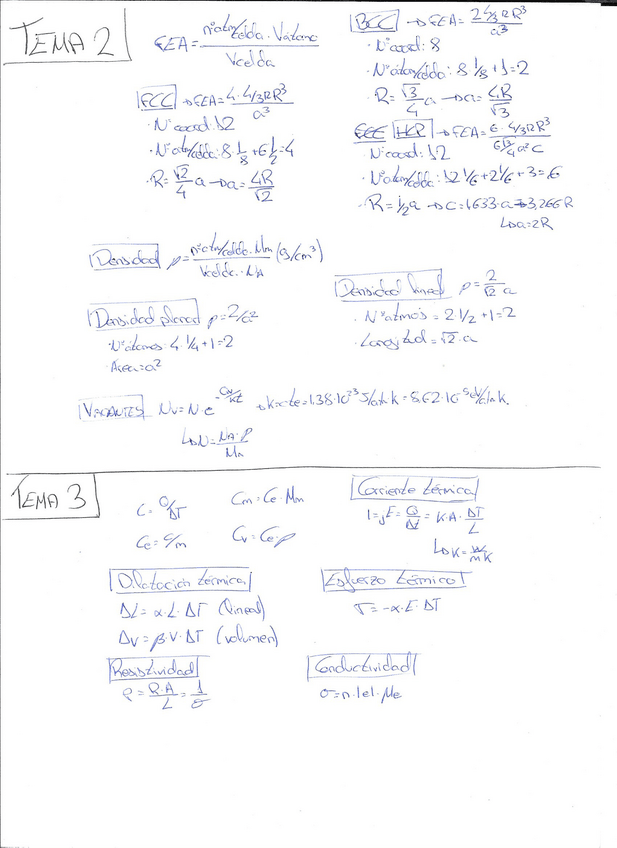 TEMA 2
FEA = nºatm/celda · Vátomo / Vcelda
FCC → FEA = 4·4/3πR³ / a³
· Nº coord: 12
· Nº atm/celda: 8·1/8 + 6·1/2 = 4
· R = √2/4 a → a = 4R/√2
BCC → FEA = 2·4/3πR³ / a³
· Nº coord: 8
· Nº átom/celda: 8·1/8 + 1 = 2
· R = √3/4 a → a = 4R/√3
HKP → FEA = 6·4/3πR³
· Nº coord: 12
· Nº atm/celda: 12·1/6 + 2·1/2 + 3 = 6
· R = 1/2a → c = 1,633·a → 3,266R
↳ a = 2R
Densidad ρ = nºatm/celda·Mm / Vcelda·NA (g/cm³)
Densidad planar ρ = 2/a²
· Nº átomos: 4·1/4 + 1 = 2
· Área = a²
Densidad lineal ρ = 2/√2 a
· Nº atmos = 2·1/2 + 1 = 2
· Longitud = √2·a
VACANTES Nv = N·e^(-Qv/kT) → k = cte = 1,38·10⁻²³ J/atm·k = 8,62·10⁻⁵ eV/atm·k
↳ N = NA·ρ / Mm
TEMA 3
C = Q/ΔT Cm = Ce·Mm
Ce = C/m Cv = Ce·ρ
Corriente térmica
I = jE = Q/Δt = K·A·ΔT/L
↳ K = W/mK
Dilatación térmica
ΔL = α·L·ΔT (lineal)
ΔV = β·V·ΔT (volumen)
Esfuerzo térmico
σ = -α·E·ΔT
Resistividad
ρ = R·A/L = 1/σ
Conductividad
σ = n·|e|·μe